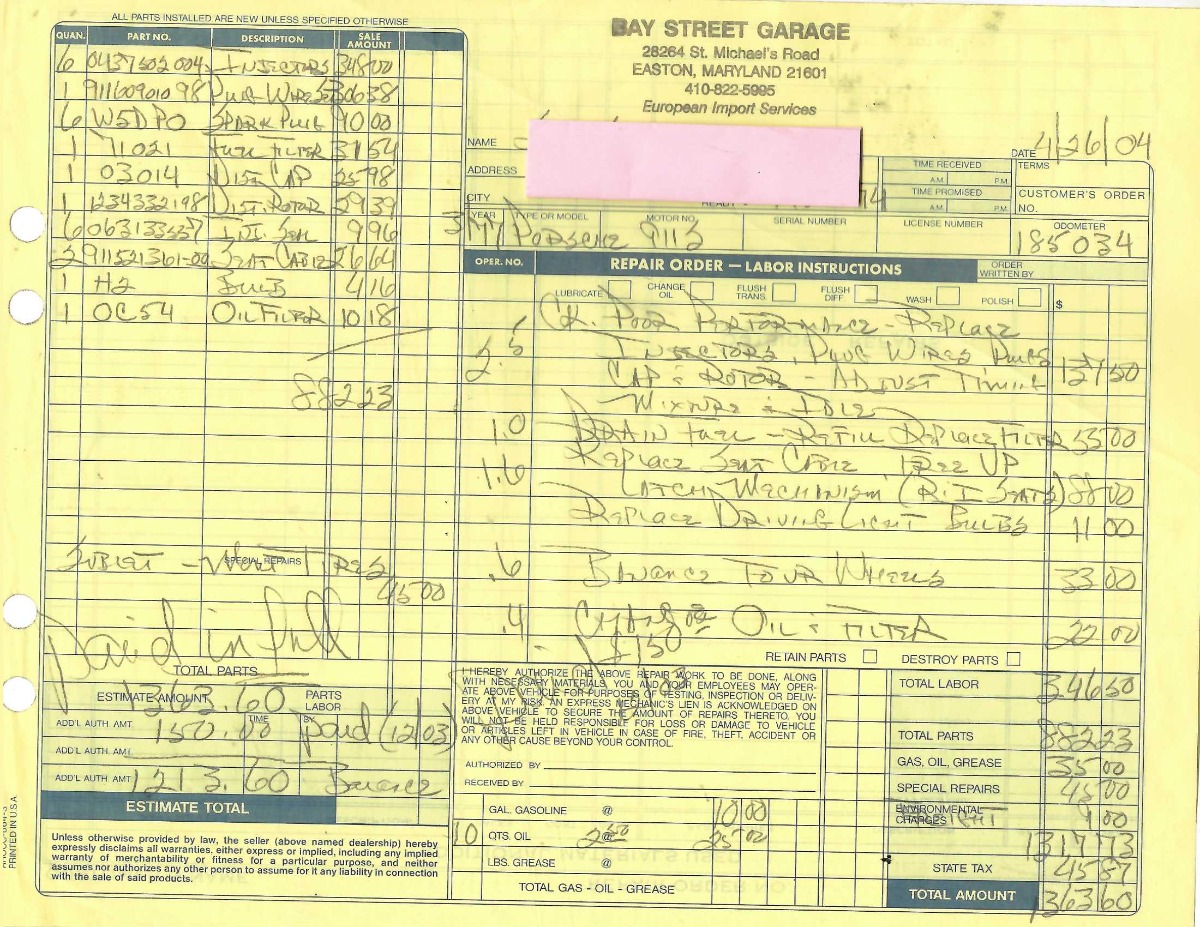 ALL PARTS INSTALLED ARE NEW UNLESS SPECIFIED OTHERWISE
QUAN. PART NO. DESCRIPTION SALE AMOUNT
6 0437502004 INJECTORS 348 00
1 91160901098 PLUG WIRES 306 38
6 W5DPO SPARK PLUG 10 00
1 71021 FUEL FILTER 31 54
1 03014 DIST CAP 25 98
1 1234332198 DIST. ROTOR 29 39
6 063133557 INJ. SEAL 9 96
2 911521361-00 SEAT CABLE 26 64
1 H2 BULB 4 16
1 OC54 OIL FILTER 10 18
882 23
SPECIAL REPAIRS
SUBLET - MOUNT TIRES
45 00
Paid in full
TOTAL PARTS
ESTIMATE AMOUNT 1363.60 PARTS LABOR
ADD'L AUTH. AMT. 150.00 TIME BY paid (12/03)
ADD'L AUTH. AMT.
ADD'L AUTH. AMT. 1213.60 Balance
ESTIMATE TOTAL
Unless otherwise provided by law, the seller (above named dealership) hereby
expressly disclaims all warranties. either express or implied, including any implied
warranty of merchantability or fitness for a particular purpose, and neither
assumes nor authorizes any other person to assume for it any liability in connection
with the sale of said products.
PRINTED IN U.S.A
BAY STREET GARAGE
28264 St. Michael's Road
EASTON, MARYLAND 21601
410-822-5995
European Import Services
NAME
DATE 4/26/04
ADDRESS
TIME RECEIVED A.M. P.M.
TERMS
CITY
TIME PROMISED A.M. P.M.
CUSTOMER'S ORDER NO.
YEAR TYPE OR MODEL MOTOR NO. SERIAL NUMBER LICENSE NUMBER ODOMETER
77 PORSCHE 911S 185034
OPER. NO. REPAIR ORDER — LABOR INSTRUCTIONS ORDER WRITTEN BY
LUBRICATE CHANGE OIL FLUSH TRANS. FLUSH DIFF WASH POLISH $
CK. POOR PERFORMANCE - REPLACE
2.5 INJECTORS, PLUG WIRES PLUGS
CAP & ROTOR - ADJUST TIMING 137 50
MIXTURE & IDLE
1.0 DRAIN FUEL - REFILL REPLACE FILTER 55 00
1.6 REPLACE SEAT CABLE, FREE UP
LATCH MECHANISM (R&I SEATS) 88 00
REPLACE DRIVING LIGHT BULBS 11 00
.6 BALANCE FOUR WHEELS 33 00
.4 CHANGE OIL & FILTER 22 00
- $150
RETAIN PARTS DESTROY PARTS
I HEREBY AUTHORIZE THE ABOVE REPAIR WORK TO BE DONE, ALONG
WITH NECESSARY MATERIALS. YOU AND YOUR EMPLOYEES MAY OPER-
ATE ABOVE VEHICLE FOR PURPOSES OF TESTING, INSPECTION OR DELIV-
ERY AT MY RISK. AN EXPRESS MECHANIC'S LIEN IS ACKNOWLEDGED ON
ABOVE VEHICLE TO SECURE THE AMOUNT OF REPAIRS THERETO. YOU
WILL NOT BE HELD RESPONSIBLE FOR LOSS OR DAMAGE TO VEHICLE
OR ARTICLES LEFT IN VEHICLE IN CASE OF FIRE, THEFT, ACCIDENT OR
ANY OTHER CAUSE BEYOND YOUR CONTROL.
AUTHORIZED BY
RECEIVED BY
GAL. GASOLINE @ 10 00
10 QTS. OIL 2 50 @ 25 00
LBS. GREASE @
TOTAL GAS - OIL - GREASE
TOTAL LABOR 346 50
TOTAL PARTS 882 23
GAS, OIL, GREASE 35 00
SPECIAL REPAIRS 45 00
ENVIRONMENTAL CHARGES 9 00
1317 73
STATE TAX 45 87
TOTAL AMOUNT 1363 60